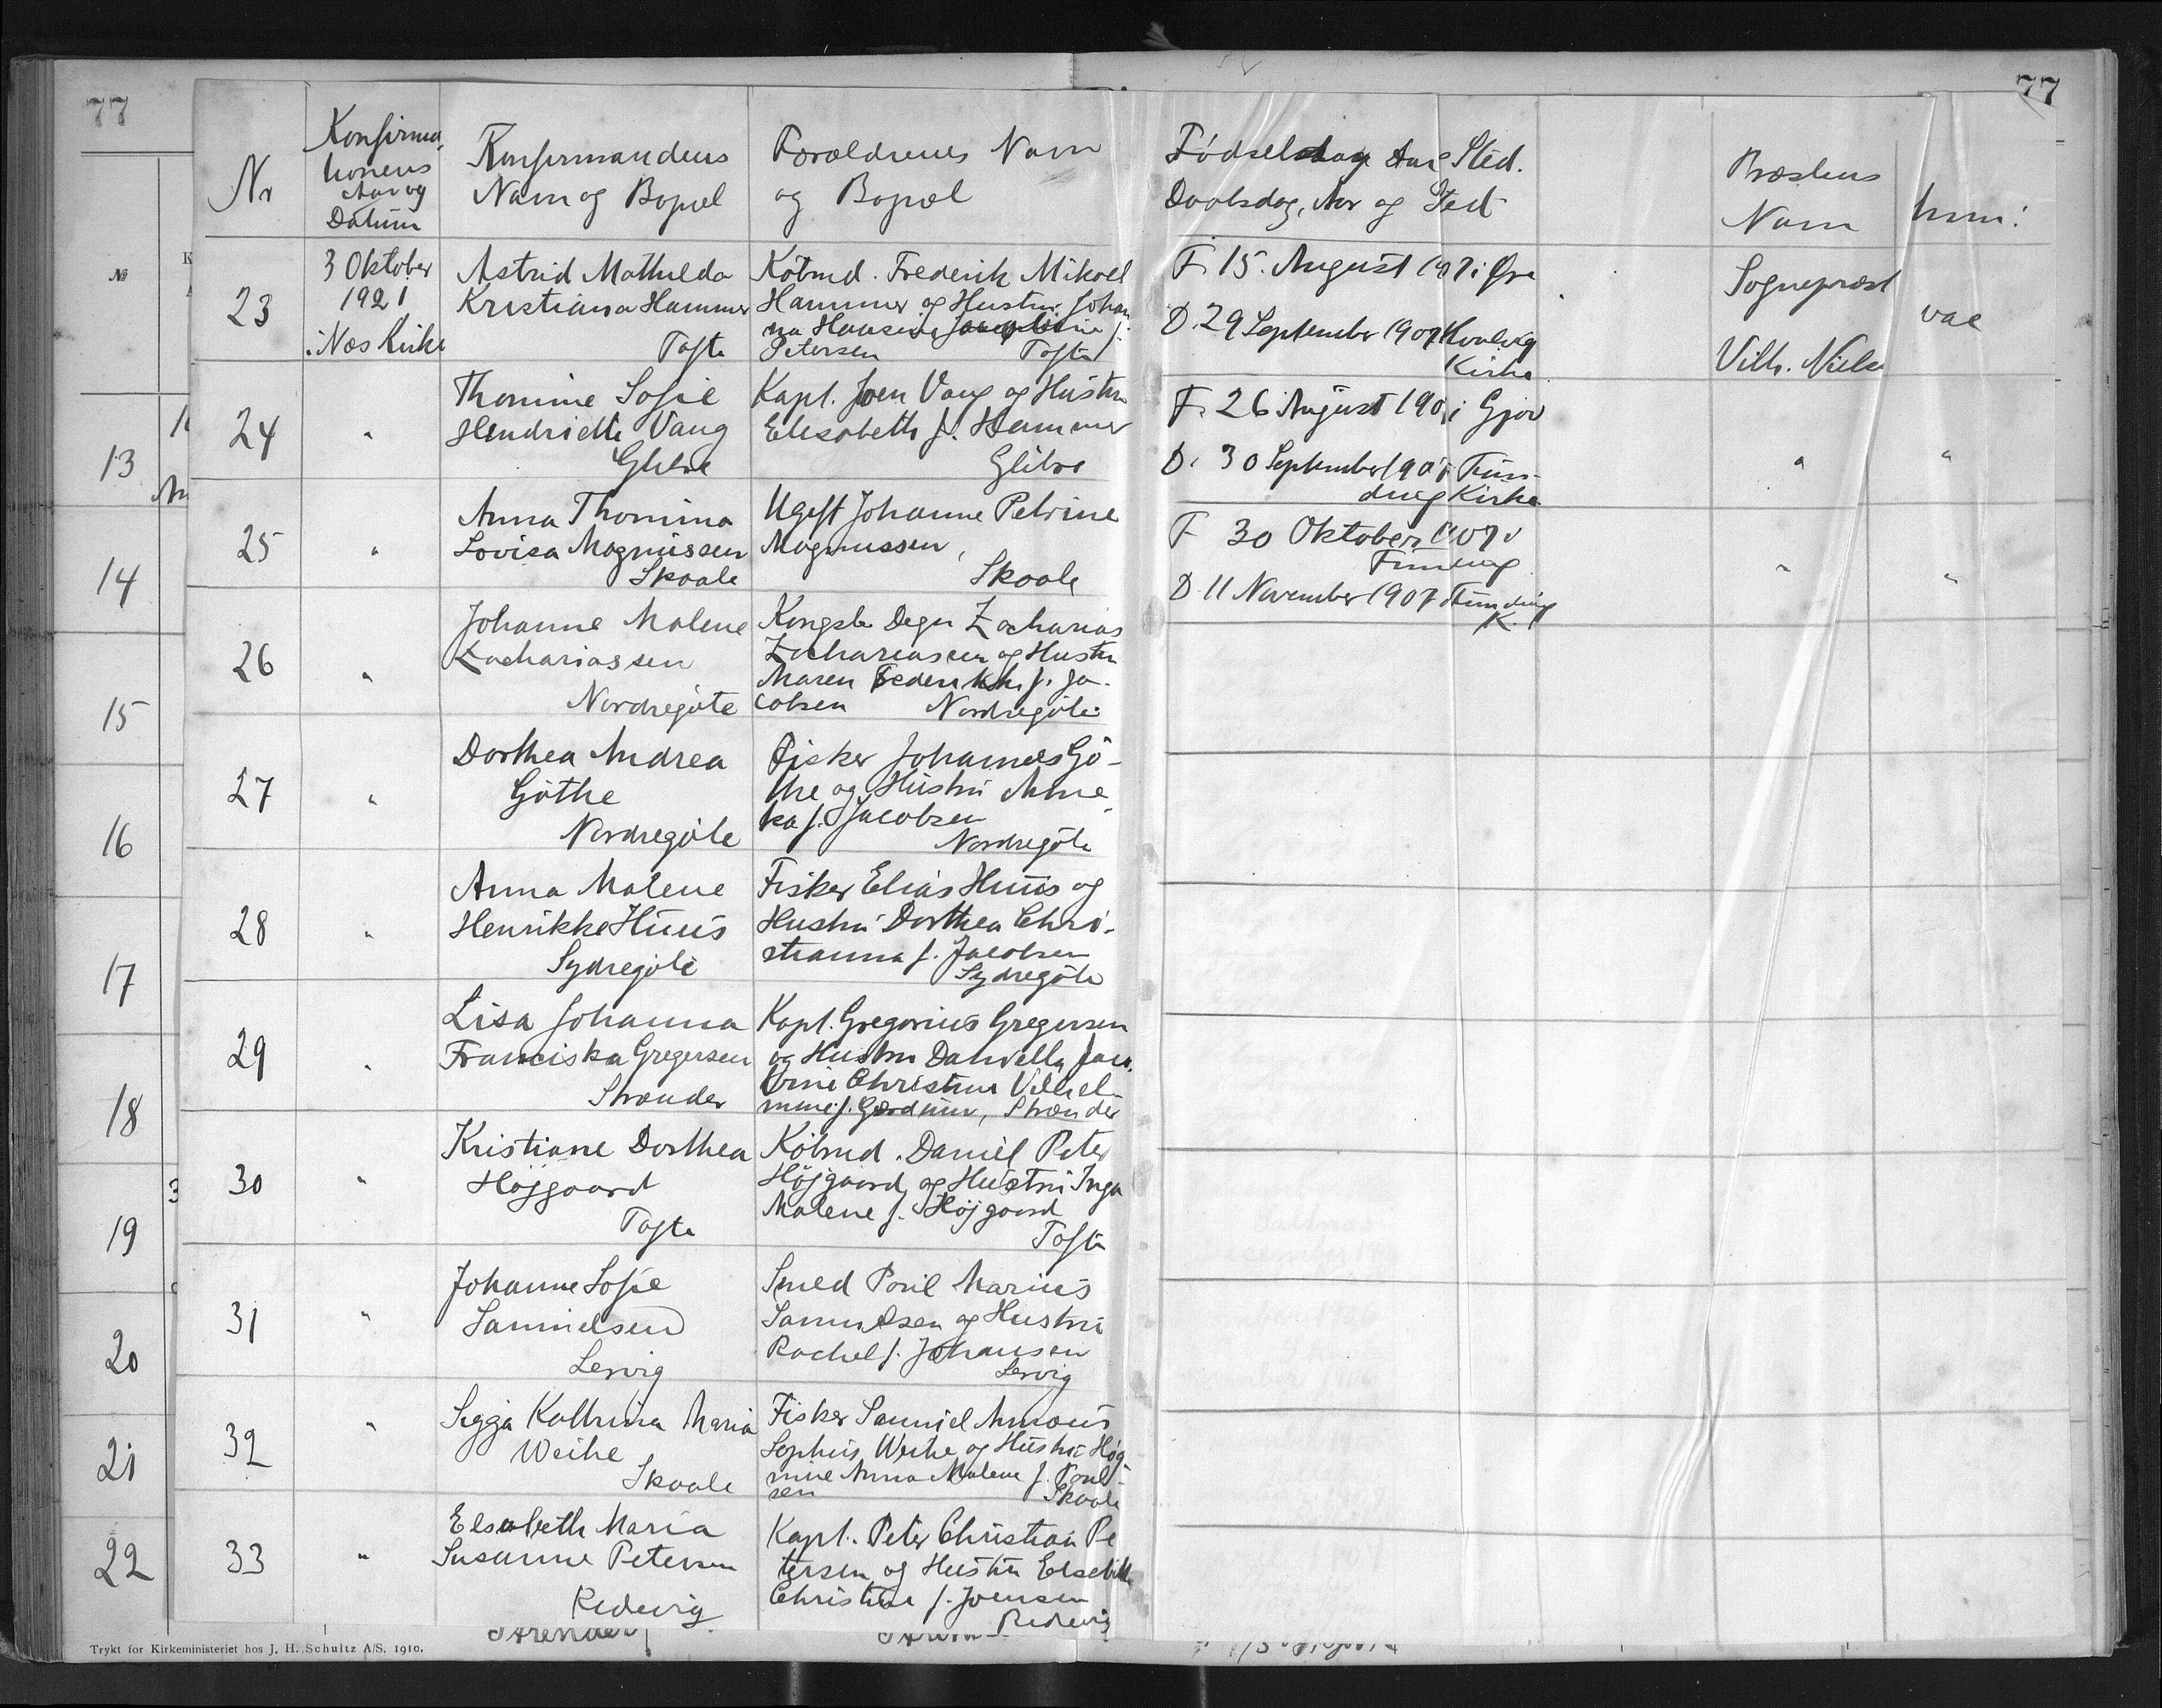 77
77
Nr
Konfirma,
tionens
Aar og
Datum
Konfirmandens
Navn og Bopæl
Forældrenes Navn
og Bopæl
Fødselsdag Aar Sted.
Daabsdag, Aar og Sted
Præstens
Navn
№
23
3 Oktober
1921
i Næs Kirke
Astrid Mathilda
Kristiana Hammer
Tofte
Købmd. Frederik Mikael
Hammer og Hustru Johan
na Hansina f.
Petersen Tofte
F. 15. August 1907 i
D. 29 September 1907
Kirke
Sognepræst
Vilh. Niels
vac
24
"
Thomine Sofie
Hendriette Vang
Glibre
Kapt. Joen Vang og Hustru
Elisabeth f. Hammer
Glibre
F. 26 August 190 i Gjov
D. 30 September 1907 Fun-
ding Kirke
"
"
25
"
Anna Thomina
Lovisa Magnussen
Skaale
Ugift Johanne Petrine
Magnussen,
Skaale
F 30 Oktober 1907 i
Funding
D 11 November 1907 Funding
K.
"
"
26
"
Johanne Malene
Zachariassen
Nordregöte
Kongsb. Degn Zacharias
Zachariassen og Hustru
Maren Frederikke f. Ja-
cobsen Nordregöte
27
"
Dorthea Andrea
Göthe
Nordregöte
Fisker Johannes Gö-
the og Hustru Anne
ka f. Jacobsen
Nordregöte
28
"
Anna Malene
Henrikke Huus
Sydregöte
Fisker Elias Huus og
Hustru Dorthea Chri-
stianna f. Jacobsen
Sydregöte
29
"
Lisa Johanna
Franciska Gregersen
Strænder
Kapt. Gregorius Gregersen
og Hustru Daniella Jaco
brine Christine Vilhel-
mine f. Strænder
30
"
Kristiane Dorthea
Højgaard
Tofte
Købmd. Daniel Peter
Højgaard og Hustru Inga
Malene f. Højgaard
Tofte
31
"
Johanne Sofie
Samuelsen
Lervig
Smed Poul Marius
Samuelsen og Hustru
Rachel f. Johansen
Lervig
32
"
Sigga Kathrina Maria
Weihe
Skaale
Fisker Samuel
Sophus Weihe og Hustru Høg
nine Anna Malene f. Poul-
sen Skaale
33
"
Elsabeth Maria
Susanne Petersen
Redevig
Kapt. Peter Christian Pe
tersen og Hustru Elsebeth
Christine f. Joensen
Redevig
13
14
15
16
17
18
19
20
21
22
Trykt for Kirkeministeriet hos J. H. Schultz A/S. 1910.